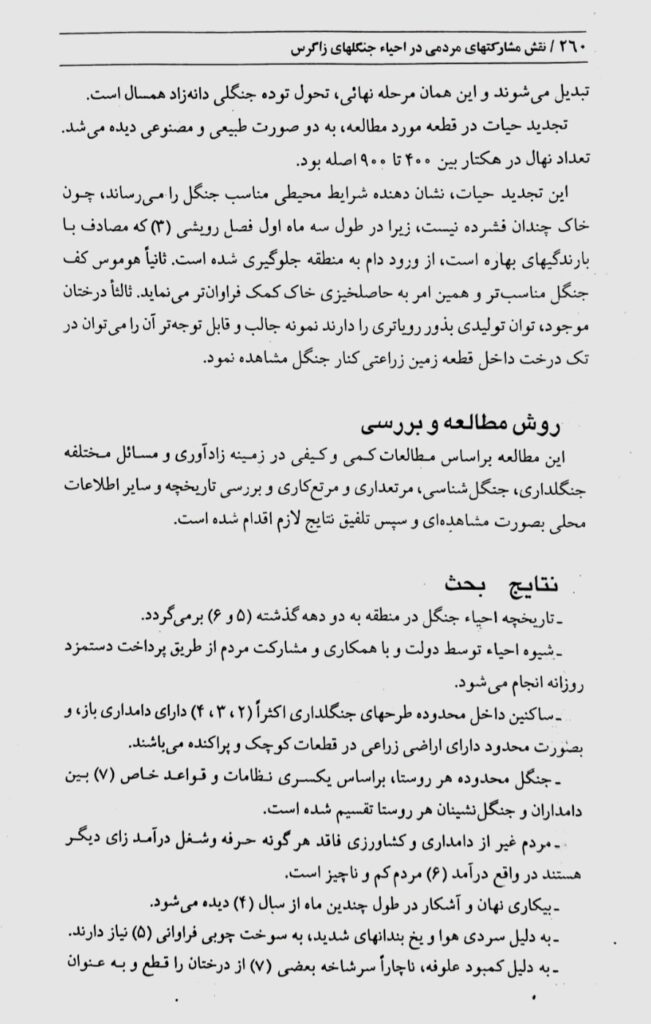 ۲٦۰ / نقش مشارکتهای مردمی در احیاء جنگلهای زاگرس
تبدیل می‌شوند و این همان مرحله نهائی، تحول توده جنگلی دانه‌زاد همسال است.
تجدید حیات در قطعه مورد مطالعه، به دو صورت طبیعی و مصنوعی دیده می‌شد.
تعداد نهال در هکتار بین ۴۰۰ تا ۹۰۰ اصله بود.
این تجدید حیات، نشان دهنده شرایط محیطی مناسب جنگل را می‌رساند، چون
خاک چندان فشرده نیست، زیرا در طول سه ماه اول فصل رویشی (۳) که مصادف با
بارندگیهای بهاره است، از ورود دام به منطقه جلوگیری شده است. ثانیاً هوموس کف
جنگل مناسب‌تر و همین امر به حاصلخیزی خاک کمک فراوان‌تر می‌نماید. ثالثاً درختان
موجود، توان تولیدی بذور رویاتری را دارند نمونه جالب و قابل توجه‌تر آن را می‌توان در
تک درخت داخل قطعه زمین زراعتی کنار جنگل مشاهده نمود.
روش مطالعه و بررسی
این مطالعه براساس مطالعات کمی و کیفی در زمینه زادآوری و مسائل مختلفه
جنگلداری، جنگل‌شناسی، مرتعداری و مرتع‌کاری و بررسی تاریخچه و سایر اطلاعات
محلی بصورت مشاهده‌ای و سپس تلفیق نتایج لازم اقدام شده است.
نتایج بحث
ـ تاریخچه احیاء جنگل در منطقه به دو دهه گذشته (۵ و ۶) برمی‌گردد.
ـ شیوه احیاء توسط دولت و با همکاری و مشارکت مردم از طریق پرداخت دستمزد
روزانه انجام می‌شود.
ـ ساکنین داخل محدوده طرحهای جنگلداری اکثراً (۲، ۳، ۴) دارای دامداری باز، و
بصورت محدود دارای اراضی زراعی در قطعات کوچک و پراکنده می‌باشند.
ـ جنگل محدوده هر روستا، براساس یکسری نظامات و قواعد خاص (۷) بین
دامداران و جنگل‌نشینان هر روستا تقسیم شده است.
ـ مردم غیر از دامداری و کشاورزی فاقد هر گونه حرفه وشغل درآمد زای دیگر
هستند در واقع درآمد (۶) مردم کم و ناچیز است.
ـ بیکاری نهان و آشکار در طول چندین ماه از سال (۴) دیده می‌شود.
ـ به دلیل سردی هوا و یخ بندانهای شدید، به سوخت چوبی فراوانی (۵) نیاز دارند.
ـ به دلیل کمبود علوفه، ناچاراً سرشاخه بعضی (۷) از درختان را قطع و به عنوان